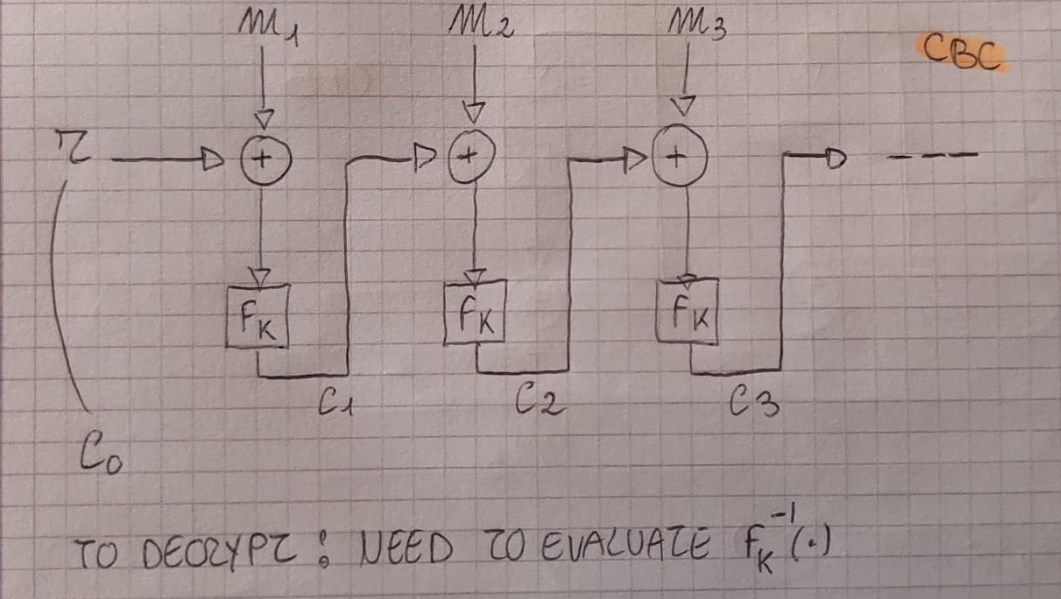 m₁ m₂ m₃
CBC
r
+ + +
F_K F_K F_K
C₁ C₂ C₃
C₀
TO DECRYPT: NEED TO EVALUATE F_K⁻¹(·)